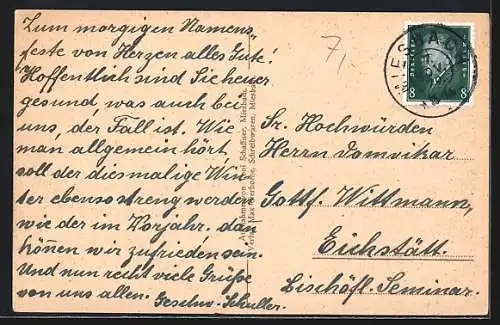 Zum morgigen Namens,
feste von Herzen alles Gute!
Hoffentlich sind Sie heuer
gesund, was auch bei
uns, der Fall ist. Wie
man allgemein hört,
soll der diesmalige Win-
ter ebenso streng werden
wie der im Vorjahr. dan
können wir zufrieden sein.
Und nun recht viele Grüße
von uns allen.
Geschw. Schuller.
7,-
MIESBACH
8 8
Sr. Hochwürden
Herrn Domvikar
Gottf. Wittmann,
Eichstätt.
Bischöfl. Seminar.
Schaffner, Miesbach.
Schreibwaren, Miesbach